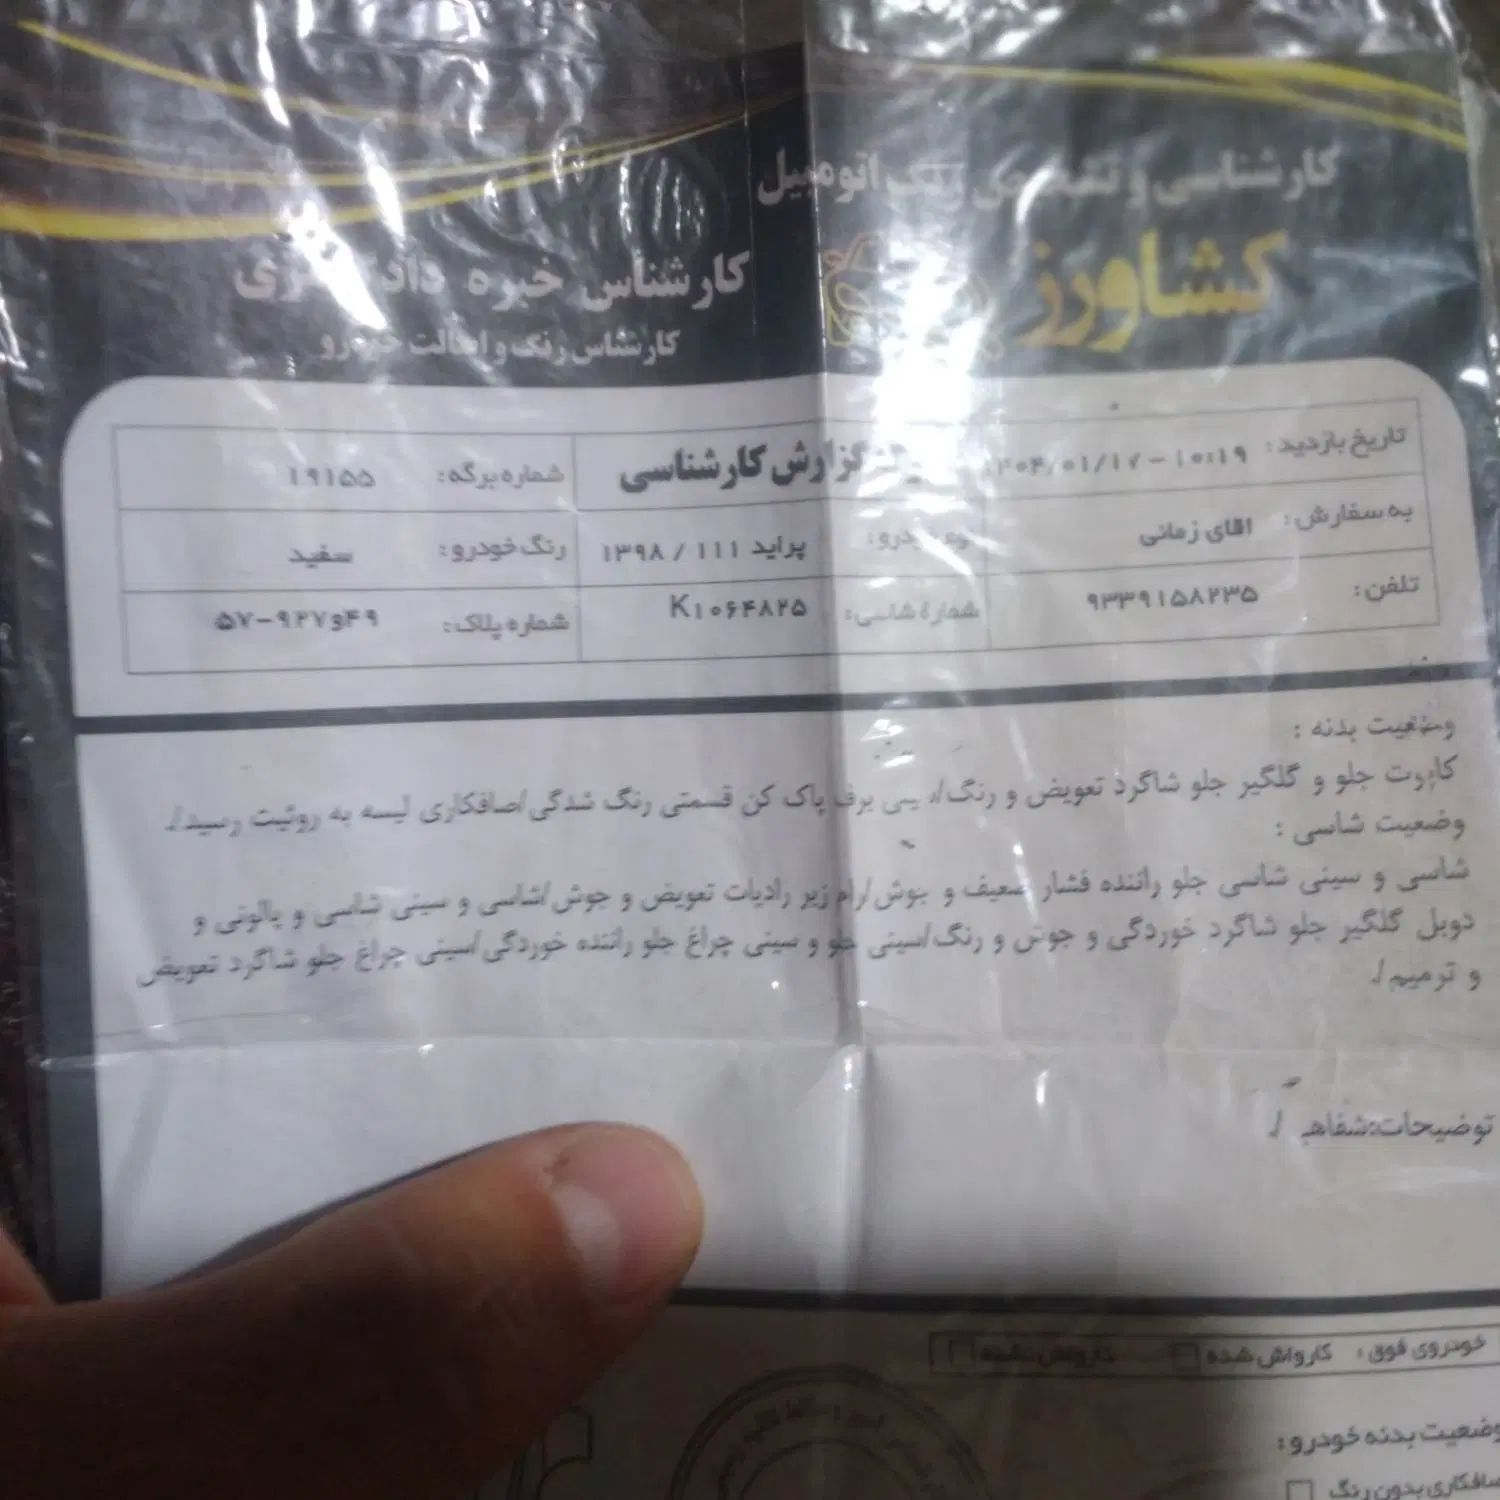 کارشناسی و تشخیص رنگ اتومبیل
کشاورز
کارشناس خبره
کارشناس رنگ و اصالت خودرو
تاریخ بازدید: ۱۴۰۴/۰۱/۱۷ - ۱۰:۱۹
گزارش کارشناسی
شماره برگه: ۱۹۱۵۵
به سفارش: اقای زمانی
نوع خودرو: پراید ۱۱۱ / ۱۳۹۸
رنگ خودرو: سفید
تلفن: ۹۳۳۹۱۵۸۲۳۵
شماره شاسی: K۱۰۶۴۸۲۵
شماره پلاک: ۴۹و۹۲۷-۵۷
وضعیت بدنه :
کاپوت جلو و گلگیر جلو شاگرد تعویض و رنگ/ برف پاک کن قسمتی رنگ شدگی/صافکاری لیسه به روئیت رسید/.
وضعیت شاسی :
شاسی و سینی شاسی جلو راننده فشار ضعیف و جوش/رام زیر رادیات تعویض و جوش/شاسی و سینی شاسی و پالونی و
دوبل گلگیر جلو شاگرد خوردگی و جوش و رنگ/سینی جلو و سینی چراغ جلو راننده خوردگی/سینی چراغ جلو شاگرد تعویض
و ترمیم/.
توضیحات:شفاهی /.
خودروی فوق: کارواش شده کارواش نشده
وضعیت بدنه خودرو:
صافکاری بدون رنگ